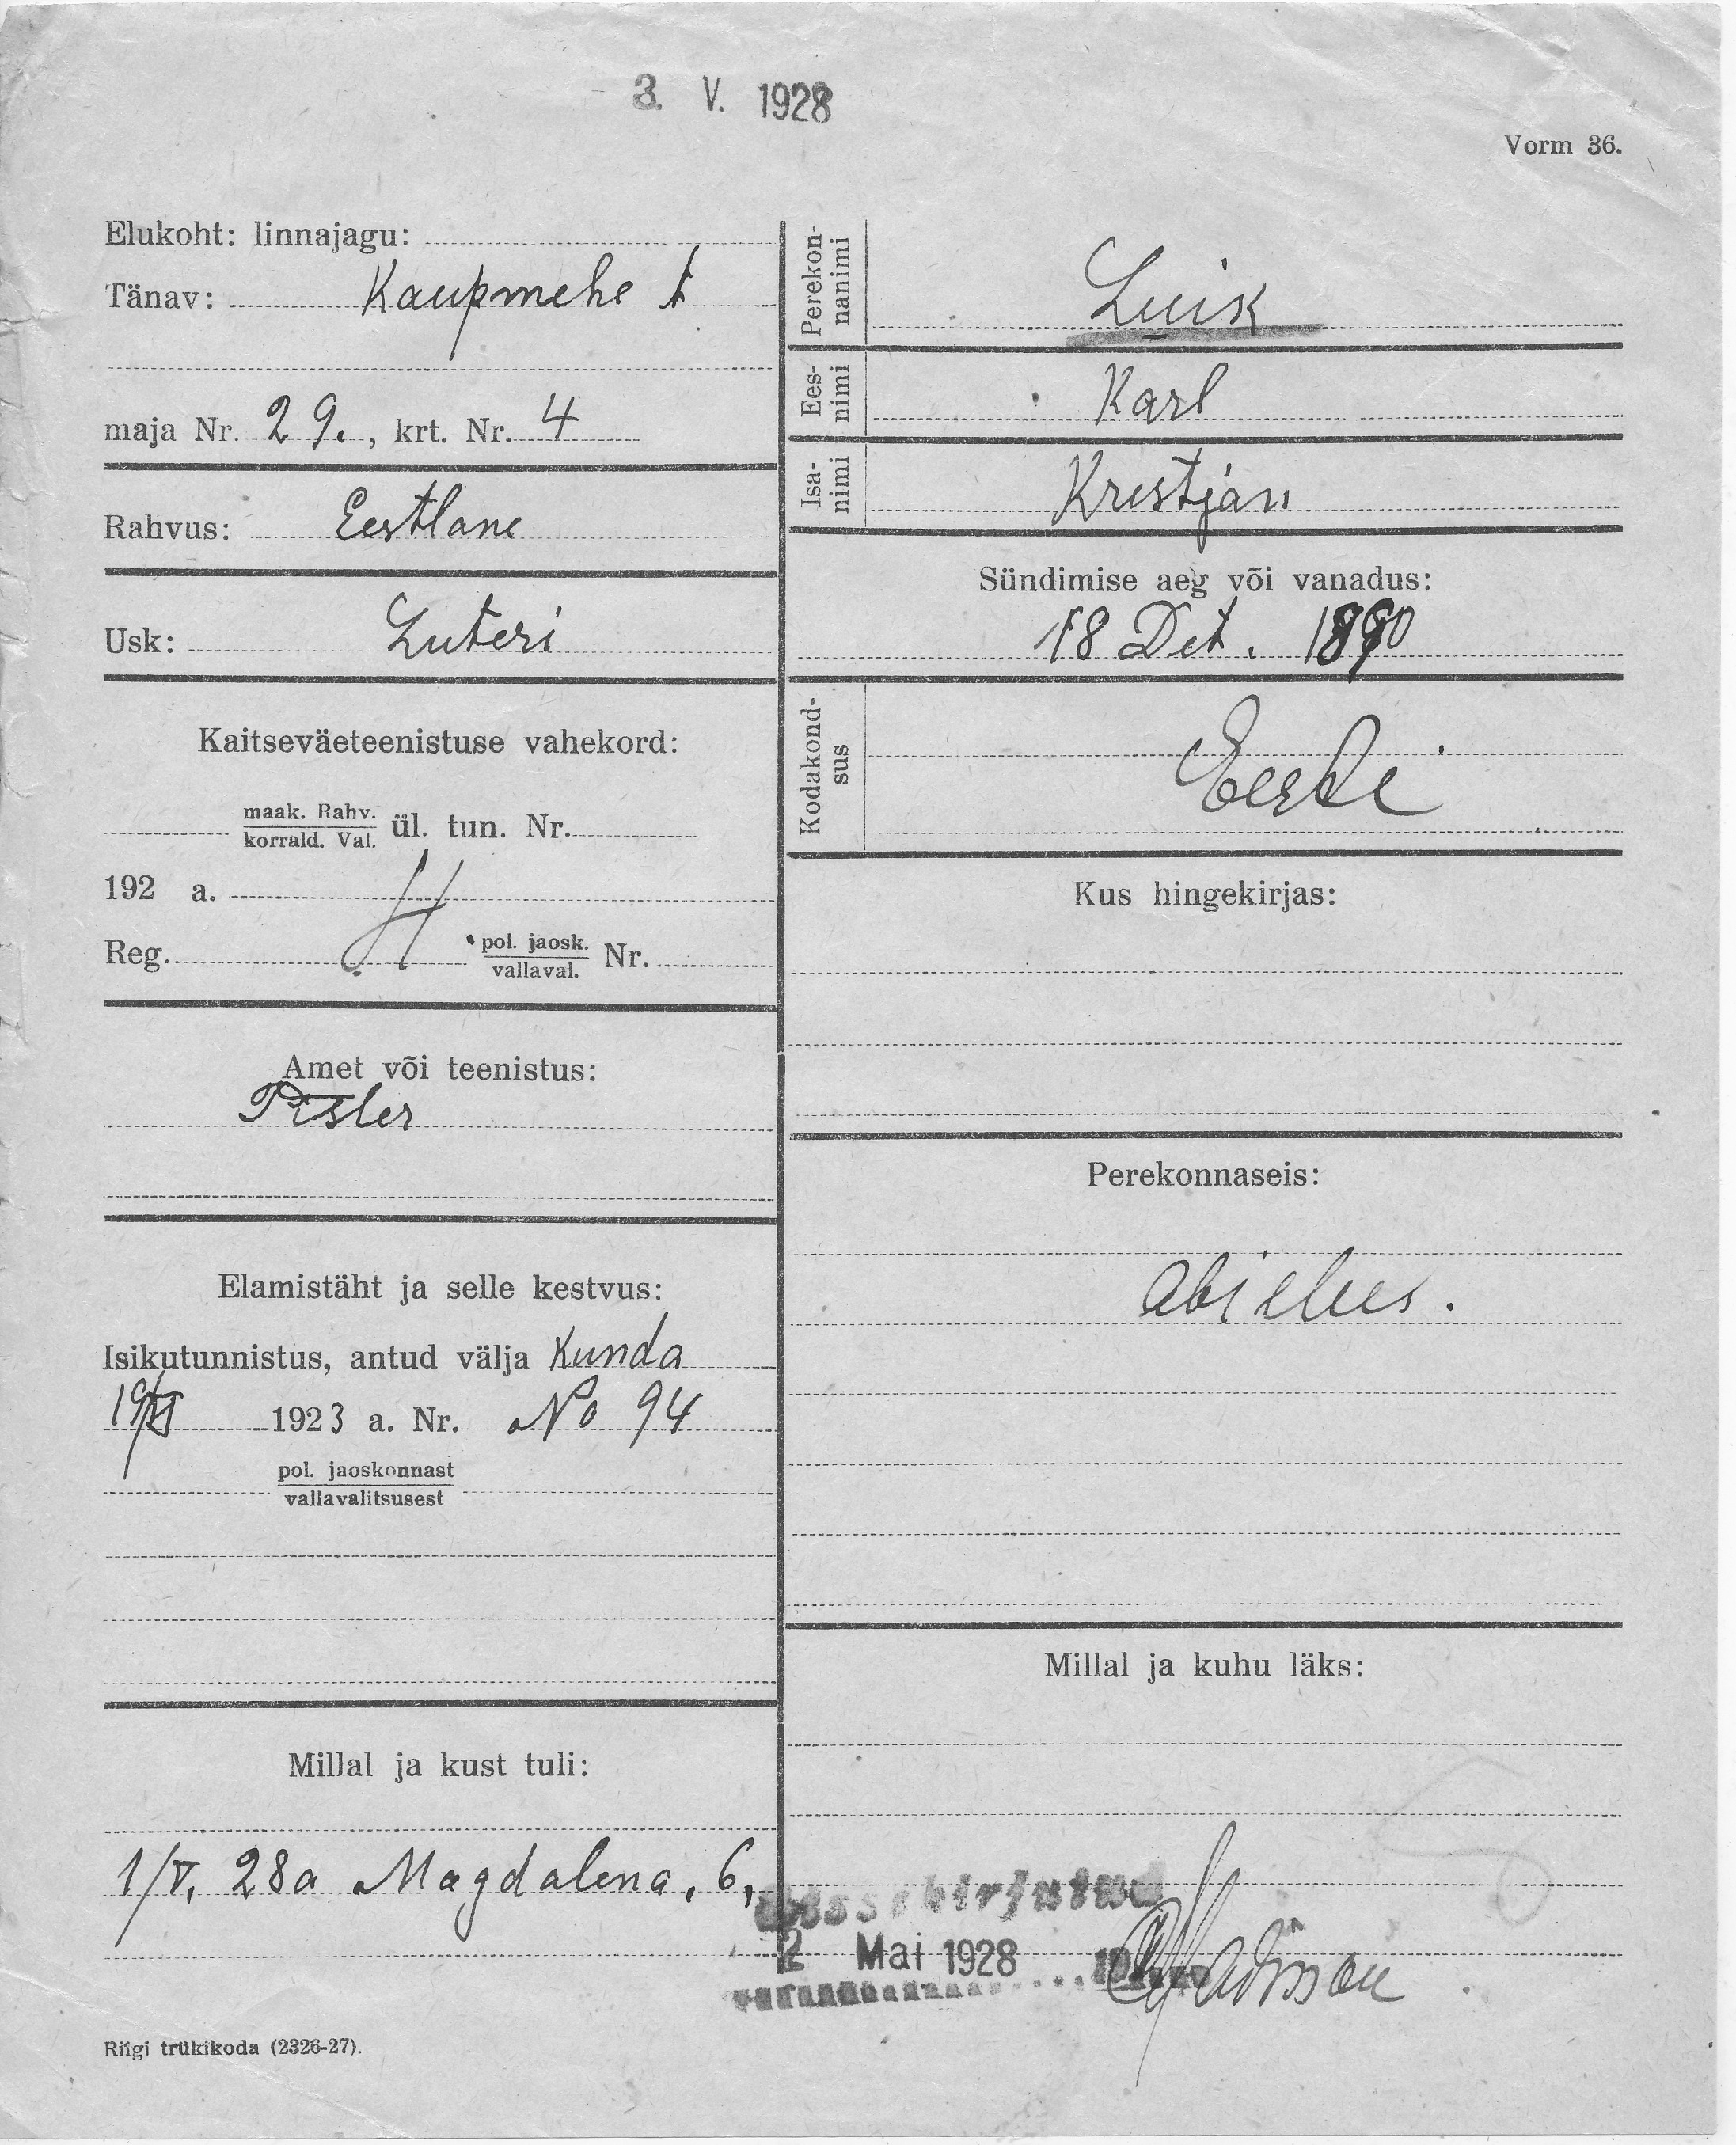 3. V. 1928
Vorm 36.
Elukoht: linnajagu:
Tänav: Kaupmehe t
maja Nr. 29., krt. Nr. 4
Rahvus: Eestlane
Usk: Luteri
Kaitseväeteenistuse vahekord:
maak. Rahv.
korrald. Val. ül. tun. Nr.
192 a.
Reg. pol. jaosk.
vallaval. Nr.
Amet või teenistus:
Tisler
Elamistäht ja selle kestvus:
Isikutunnistus, antud välja Kunda
1923 a. Nr. No 94
pol. jaoskonnast
vallavalitsusest
Millal ja kust tuli:
1/V. 28a Magdalena, 6,
Riigi trükikoda (2326-27).
Perekon-
nanimi
Luik
Ees-
nimi
Karl
Isa-
nimi
Kristjan
Sündimise aeg või vanadus:
18 Det. 1890
Kodakond-
sus
Eesti
Kus hingekirjas:
Perekonnaseis:
abielus.
Millal ja kuhu läks:
Sissekirjutud
2 Mai 1928